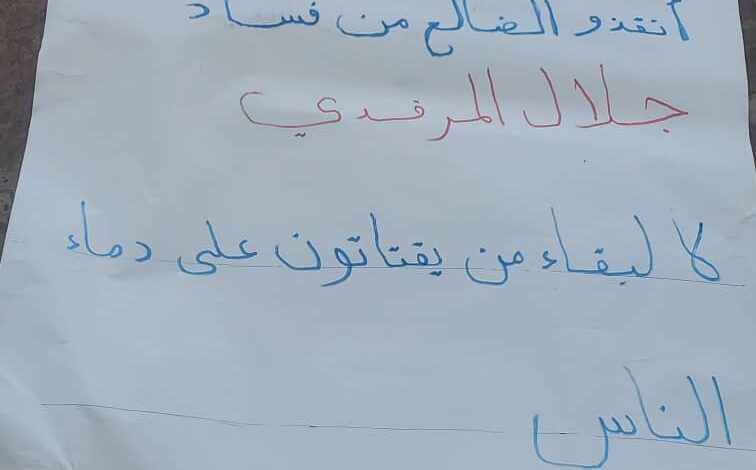 أنقذو الضالع من فساد
جلال المرفدي
لا لبقاء من يقتاتون على دماء
الناس